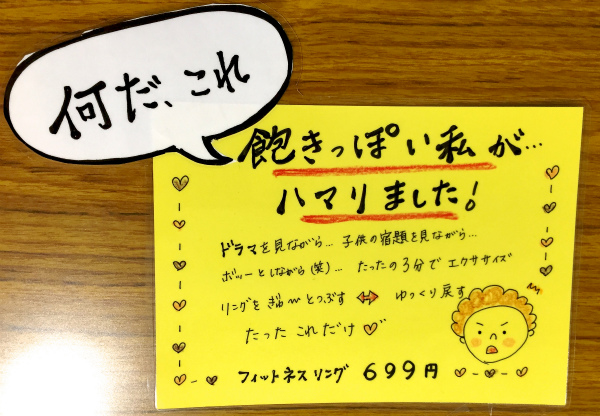 何だ、これ
飽きっぽい私が…
ハマりました!
ドラマを見ながら… 子供の宿題を見ながら…
ボッーとしながら(笑)… たったの3分で エクササイズ
リングを ぎゅ〜とつぶす ↔ ゆっくり戻す
たった これだけ♡
フィットネスリング 699円